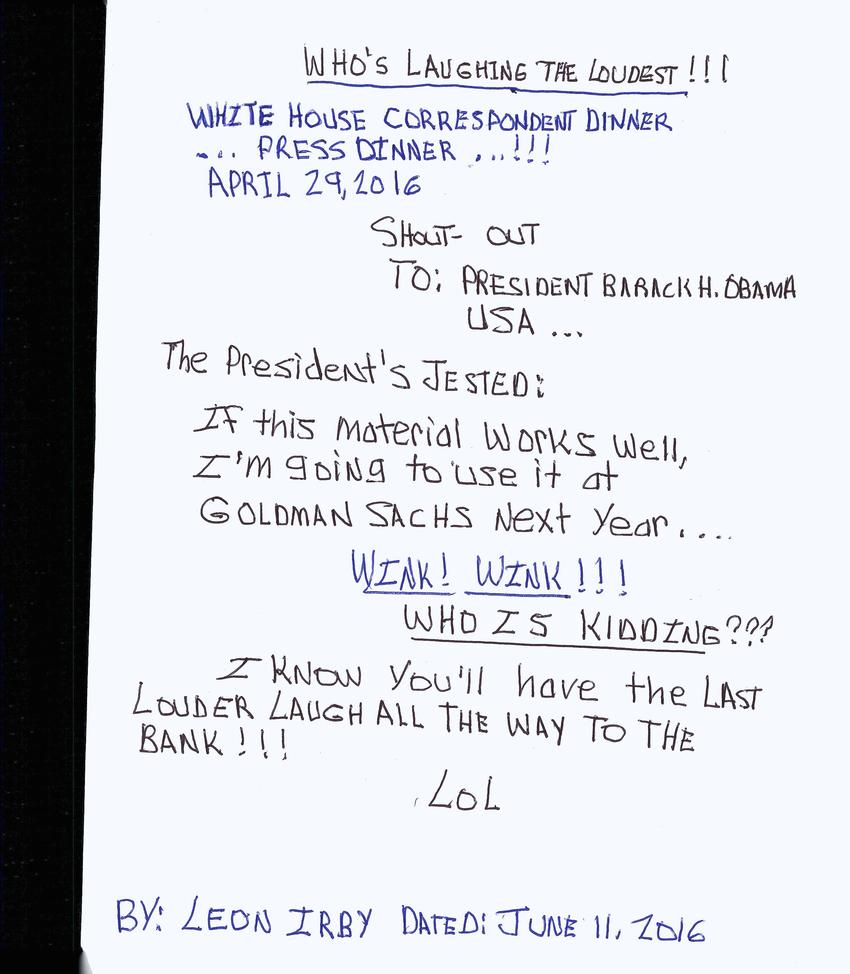 WHO'S LAUGHING THE LOUDEST!!!
WHITE HOUSE CORRESPONDENT DINNER
... PRESS DINNER ...!!!
APRIL 29, 2016
SHOUT- OUT
TO: PRESIDENT BARACK H. OBAMA
USA ...
The President's JESTED:
If this material Works Well,
I'm going to use it at
GOLDMAN SACHS Next Year....
WINK! WINK!!!
WHO IS KIDDING???
I KNOW You'll have the LAST
LOUDER LAUGH ALL THE WAY TO THE
BANK!!!
LOL
BY: LEON IRBY DATED: JUNE 11, 2016